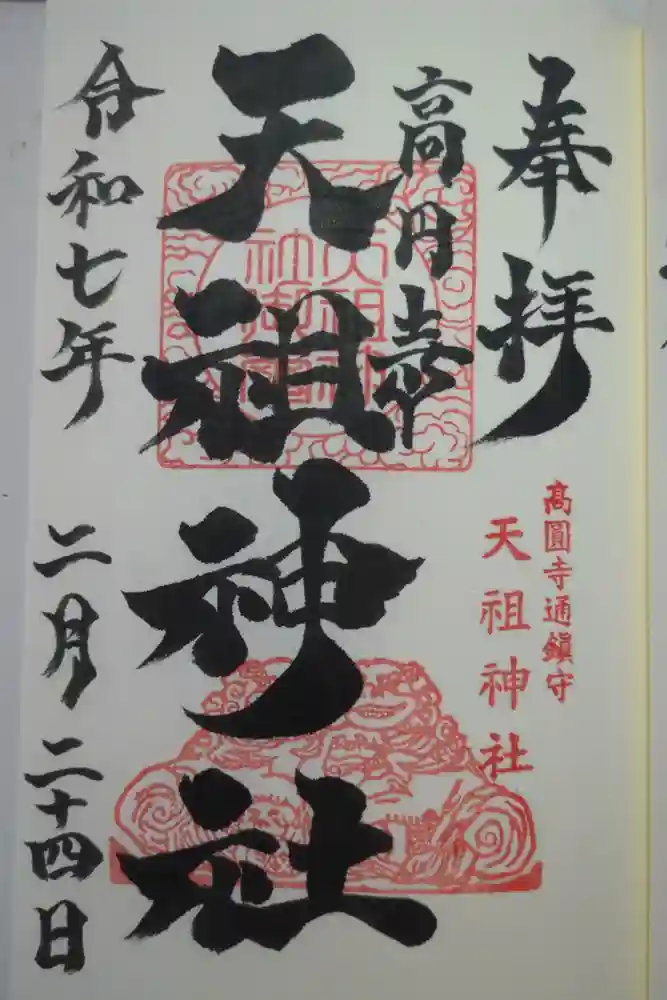 奉拝
髙圓寺通鎮守
天祖神社
高円寺
天祖神社
令和七年
二月二十四日